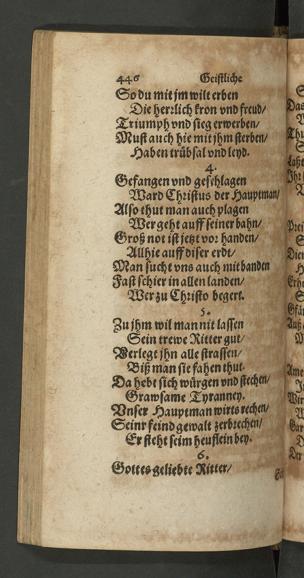 446 Geistliche
So du mit jm wilt erben
Die herzlich kron vnd freud/
Triumph vnd sieg erwerben/
Must auch hie mit jhm sterben/
Haben trübsal vnd leyd.
4.
Gefangen vnd geschlagen
Ward Christus der Hauptman/
Also thut man auch plagen
Wer geht auff seiner bahn/
Groß not ist jetzt vor handen/
Allhie auff diser erdt/
Man sucht vns auch mit banden
Fast schier in allen landen/
Wer zu Christo begert.
5.
Zu jhm wil man nit lassen
Sein trewe Ritter gut/
Verlegt jhn alle strassen/
Biß man sie fahen thut.
Da hebt sich würgen vnd stechen/
Grawsame Tyranney.
Vnser Hauptman wirts rechen/
Seinr feind gewalt zerbrechen/
Er steht seim heuflein bey.
6.
Gottes geliebte Ritter/